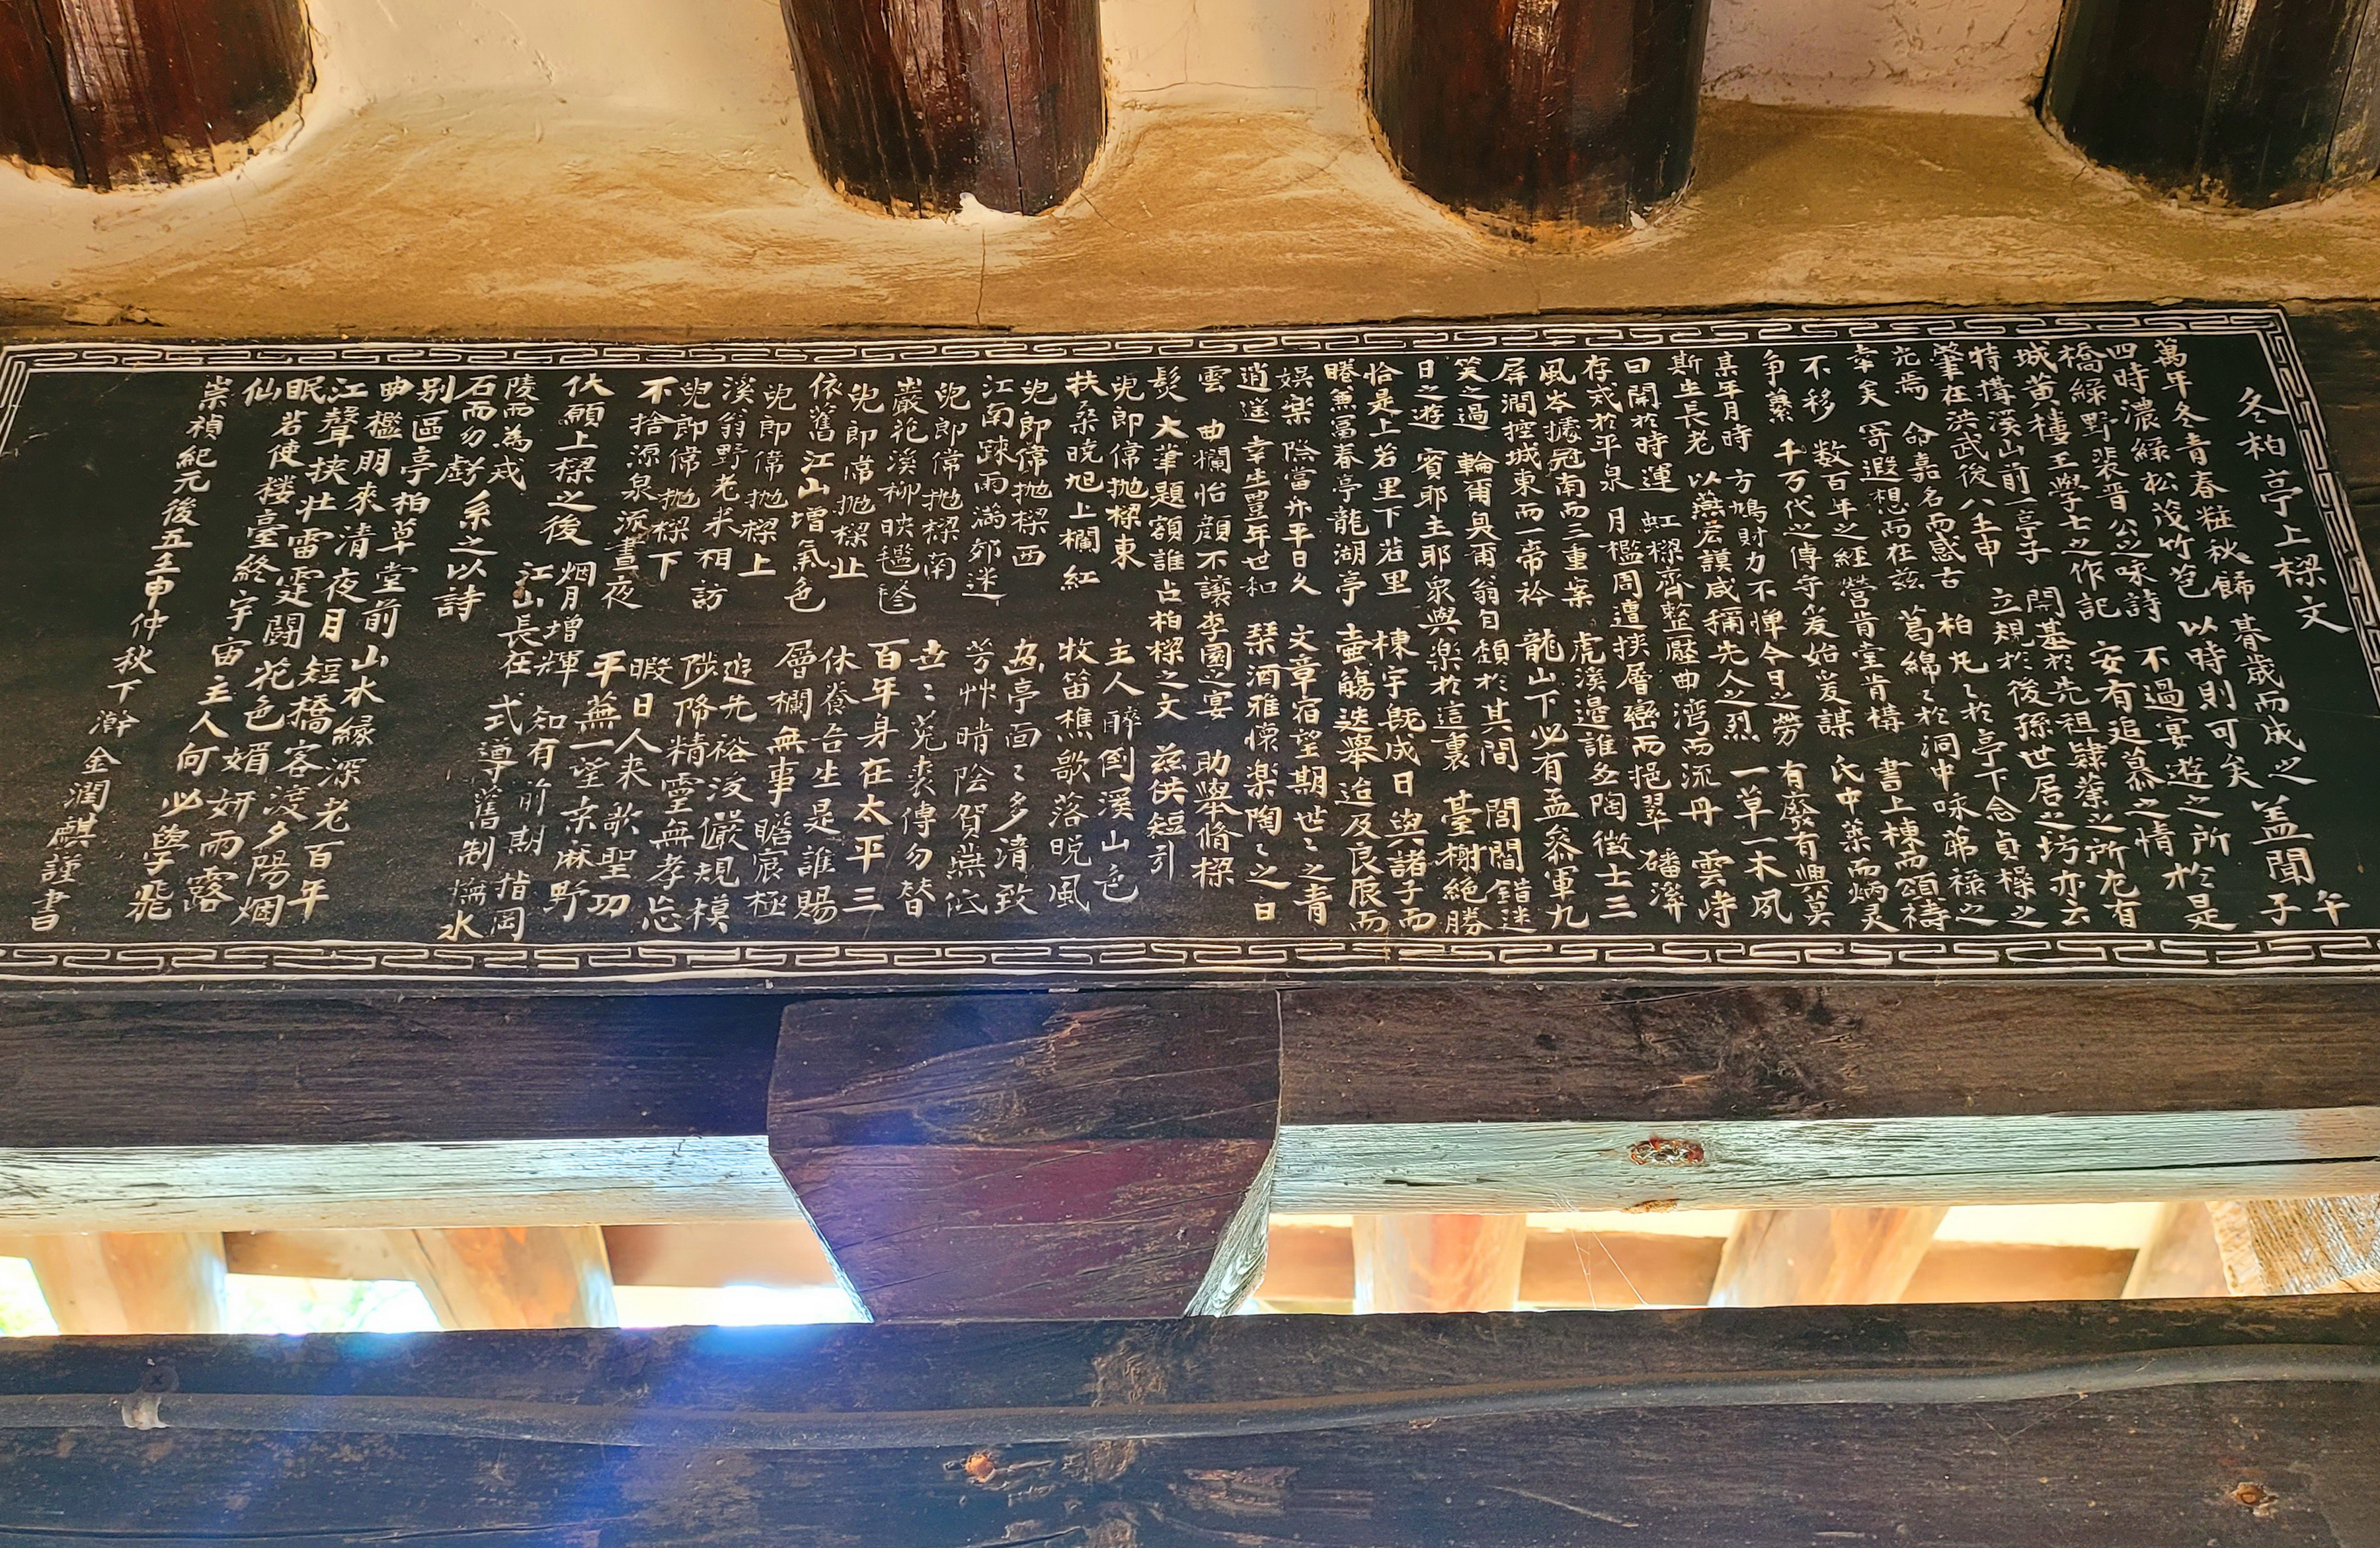 冬栢亭上樑文
萬年冬青春粧秋歸暮歲而成之盖聞子午
四時濃緑松茂竹苞以時則可矣
橋緑野裴晋公之咏詩不過宴遊之所於是
城黄樓王學士之作記安有追慕之情
特搆溪山前一亭子開基於先祖肄業之所尤有
筆在洪武後八壬申立規於後孫世居之坊亦云
光焉命嘉名而感古栢九々於亭下念貞操之
幸矣寄遐想而在茲葛綿々於洞中咏茀禄之
不移数百年之経營肯堂肯構書上棟而頌禱
争纂千万代之傳守爰始爰謀氏中葉而炳灵
某年月時方鳩財力不憚今日之勞有廢有興莫
斯生長老以燕宏謨咸稱先人之烈一草一木夙
曰開於時運虹樑齊整壓曲湾而流丹雲峙
存戒於平泉月檻周遭挾層巒而挹翠磻溪
風岺據冠南而三重案虎溪邊誰多陶徵士三
屏澗控城東而一帯衿龍山下必有孟叅軍九
笑之過輪甭㒷甭翁自頹於其間閭閻錯迷
日之遊賓耶主耶衆與楽於這裏臺榭絶勝
恰是上若里下若里棟宇旣成日與諸子而
睠兼冨春亭龍湖亭壷觴迭舉迨及良辰而
娯楽際當升平日久文章宿望期世々之青
逍遥幸生豊年世和琹酒雅懷楽陶々之白
雲曲欄怡顔不讓李園之宴助舉脩樑
髮大筆題額誰占栢樑之文茲供短引
皃郎偉抛樑東主人醉倒溪山色
扶桑晓旭上欄紅牧笛樵歌落晩風
皃郎偉抛樑西
江南疎雨滿郊迷亭面々多清致
皃郎偉抛樑南芳艸晴陰賀燕
巖花溪柳映㲯毿世々莵裘傳勿替
皃郎偉抛樑北百年身在太平三
依舊江山增氣色休養台生是誰賜
皃郎偉抛樑上層欄無事瞻宸極
溪翁野老来相訪追先裕後儼規模
皃郎偉抛樑下陟降精靈無孝忘
不捨源泉流晝夜暇日人来歌聖功
平蕪一望桒麻野
伏願上樑之後烟月增輝知有前期指岡
陵而為戒江山長在式導舊制
石而勿虧系之以詩水
别區亭栢草堂前山水縁深老百年
曲檻朋來清夜月短橋客渡夕陽烟
江聲挾壮雷霆鬪花色媚妍雨露
眠若使楼臺終宇宙主人何必學飛
仙
崇禎紀元後五壬申仲秋下澣金潤麒謹書